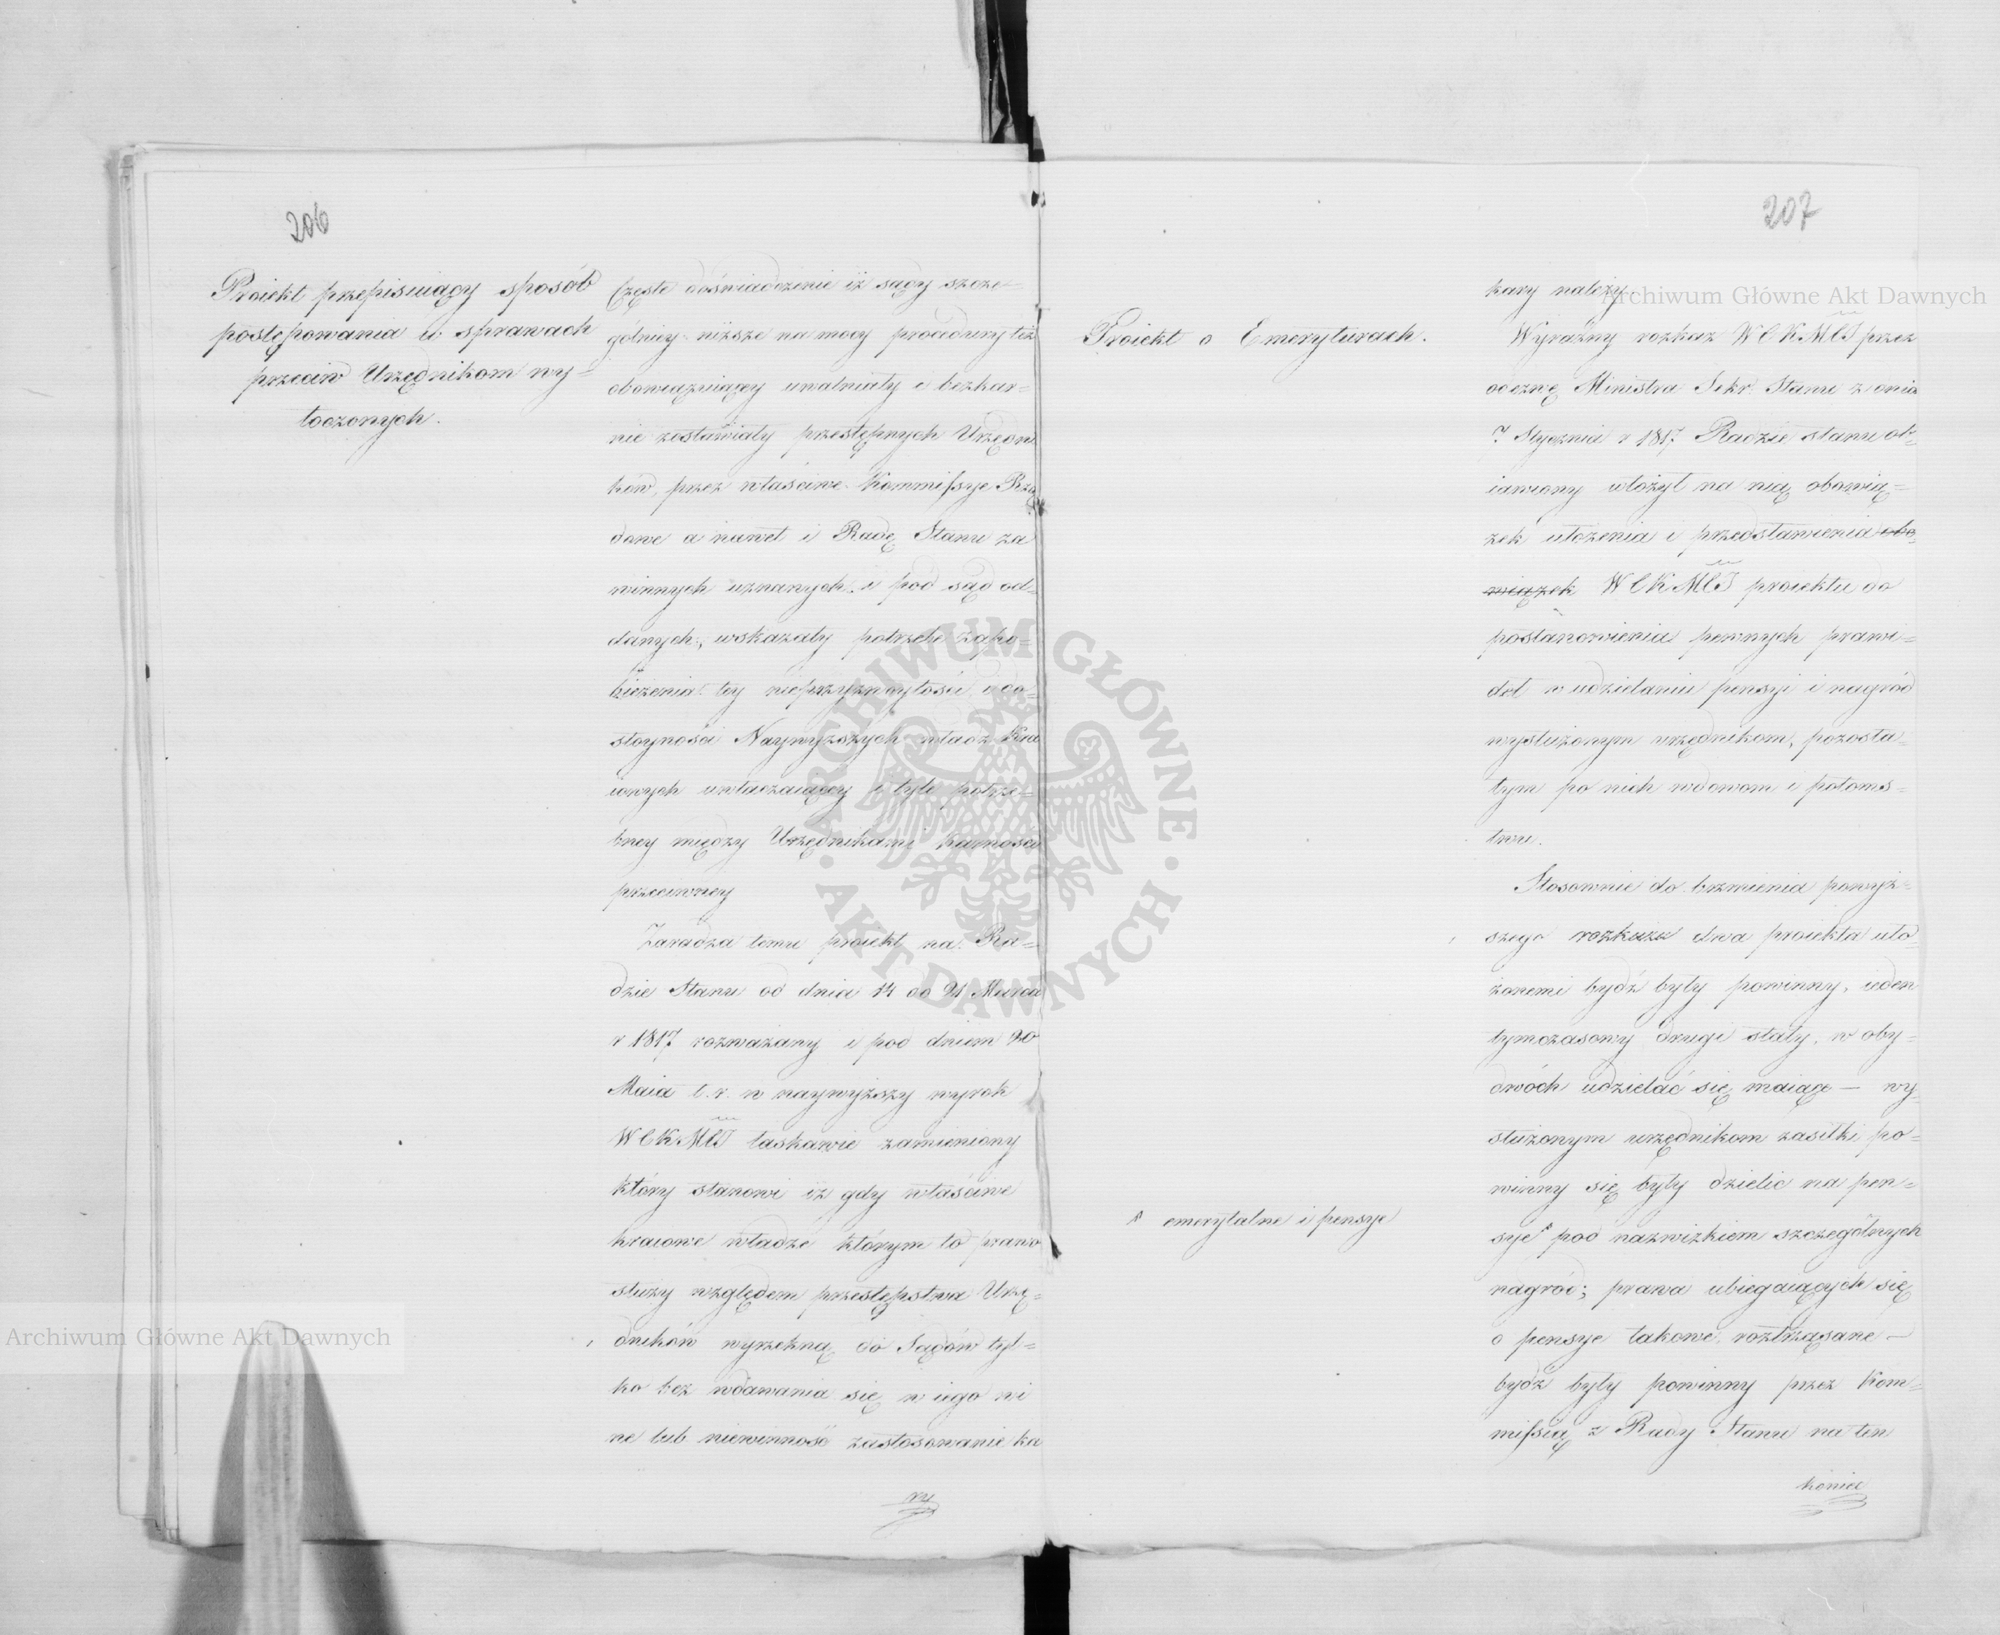 206
Proiekt przepisuiący sposób
postępowania w sprawach
przeciw Urzędnikom wy-
toczonych.
Częste doświadczenie iż sądy szcze-
gólniey niższe na mocy procedury też
obowiązuiącey uwalniały i bezkar-
nie zostawiały przestępnych Urzędni
ków, przez właściwe Kommissye Rzą
dowe a nawet i Radę Stanu za
winnych uznanych i pod sąd od-
danych, wskazały potrzebę zapo-
bieżenia tey nieprzyzwoytości, do-
stoyności Naywyższych władz Kra
iowych uwłaczaiącey i tyle potrze-
bney między Urzędnikami karności
przeciwney
Zaradza temu proiekt na Ra-
dzie Stanu od dnia 14 do 21 Marca
r 1817 rozważany i pod dniem 20
Maia t. r. w naywyższy wyrok
WCKMCI łaskawie zamieniony
który stanowi iż gdy właściwe
kraiowe władze którym to prawo
służy względem przestępstwa Urzę-
dników wyrzekną do Sądów tyl-
ko bez wdawania się w iego wi
nę lub niewinność zastosowanie ka
ry
207
Proiekt o Emeryturach.
§ emerytalne i pensye
kary należy
Wyraźny rozkaz WCKMCI przez
odezwę Ministra Sekr. Stanu z dnia
7 Stycznia r 1817 Radzie stanu ob-
iawiony włożył na nią obowią-
zek ułożenia i przedstawienia obo-
wiązek WCKMCI proiektu do
postanowienia pewnych prawi-
deł w udzielaniu pensyi i nagród
wysłużonym urzędnikom, pozosta-
łym po nich wdowom i potoms-
twu.
Stosownie do brzmienia powyż-
szego rozkazu dwa proiekta uło
żonemi bydź były powinny, ieden
tymczasowy drugi stały, w oby-
dwóch udzielać się maiące — wy-
służonym urzędnikom zasiłki po-
winny się były dzielić na pen-
sye § pod nazwiskiem szczególnych
nagród; prawa ubiegaiących się
o pensye takowe roztrząsane —
bydź były powinny przez Kom-
missią z Rady Stanu na ten
koniec
Archiwum Główne Akt Dawnych
Archiwum Główne Akt Dawnych
ARCHIWUM GŁÓWNE · AKT DAWNYCH ·